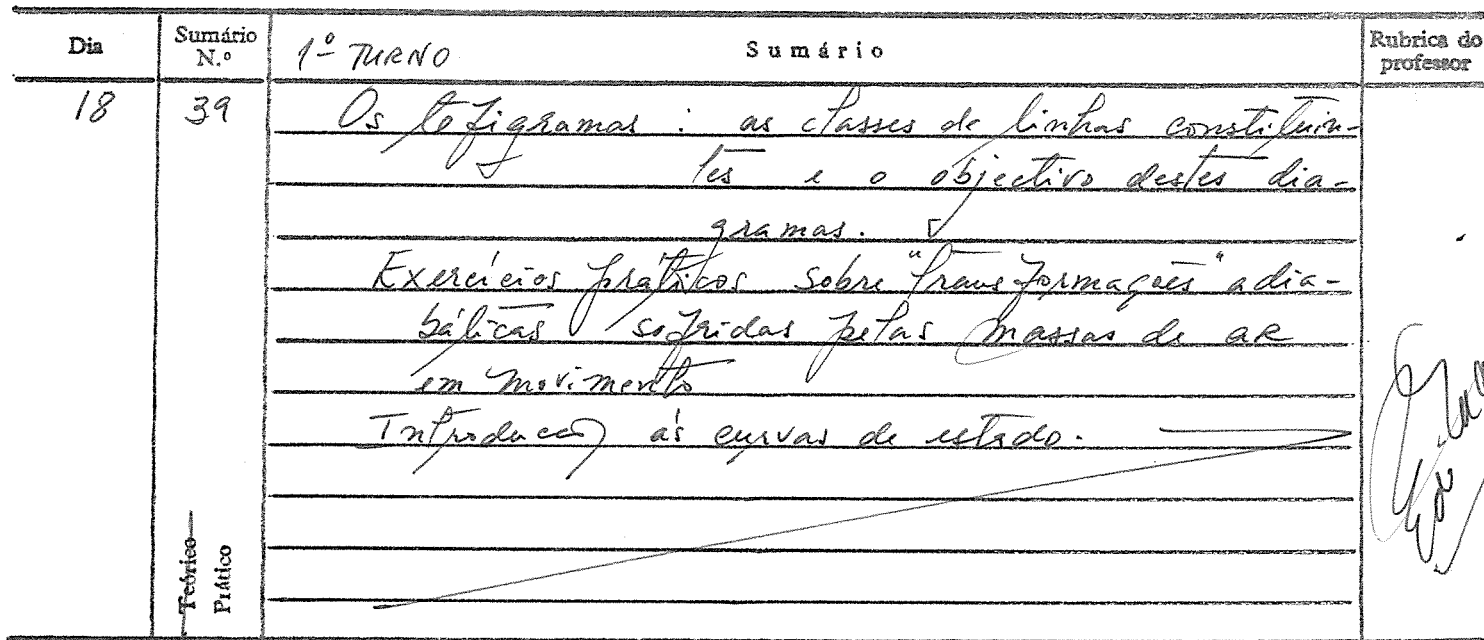 Dia Sumário N.º 1º TURNO Sumário Rubrica do professor
18 39 Os tefigramas : as classes de linhas constituin-
tes e o objectivo destes dia-
gramas.
Exercícios práticos sobre "transformações" adia-
báticas sofridas pelas massas de ar
em movimento
Introdução às curvas de estado.
Teórico
Prático